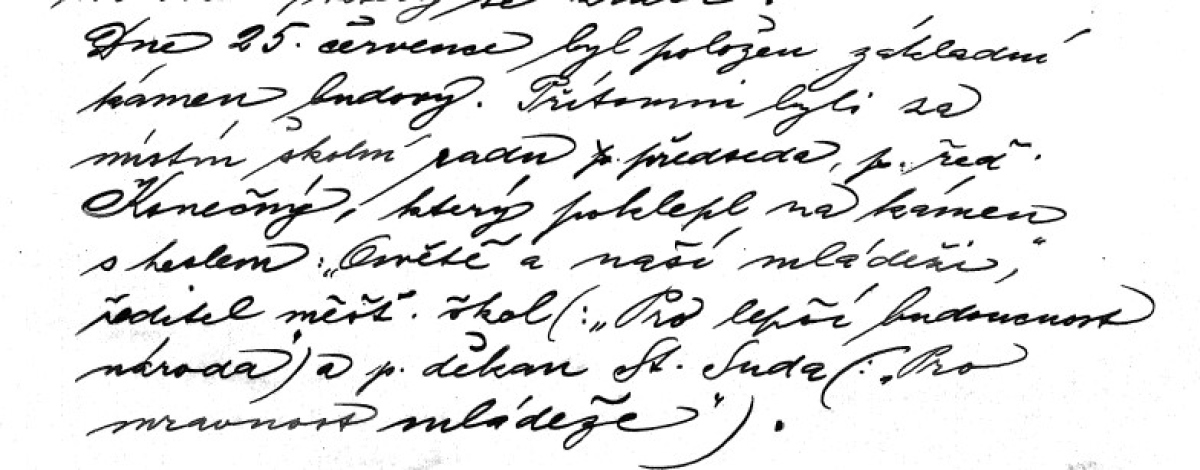 Dne 25. července byl položen základní
kámen budovy. Přítomni byli za
místní školní radu p. předseda, p. řed.
Konečný, který poklepl na kámen
s heslem: „Osvětě a naší mládeži,"
ředitel měšť. škol (: „Pro lepší budoucnost
národa") a p. děkan St. Suda (: „Pro
mravnost mládeže").